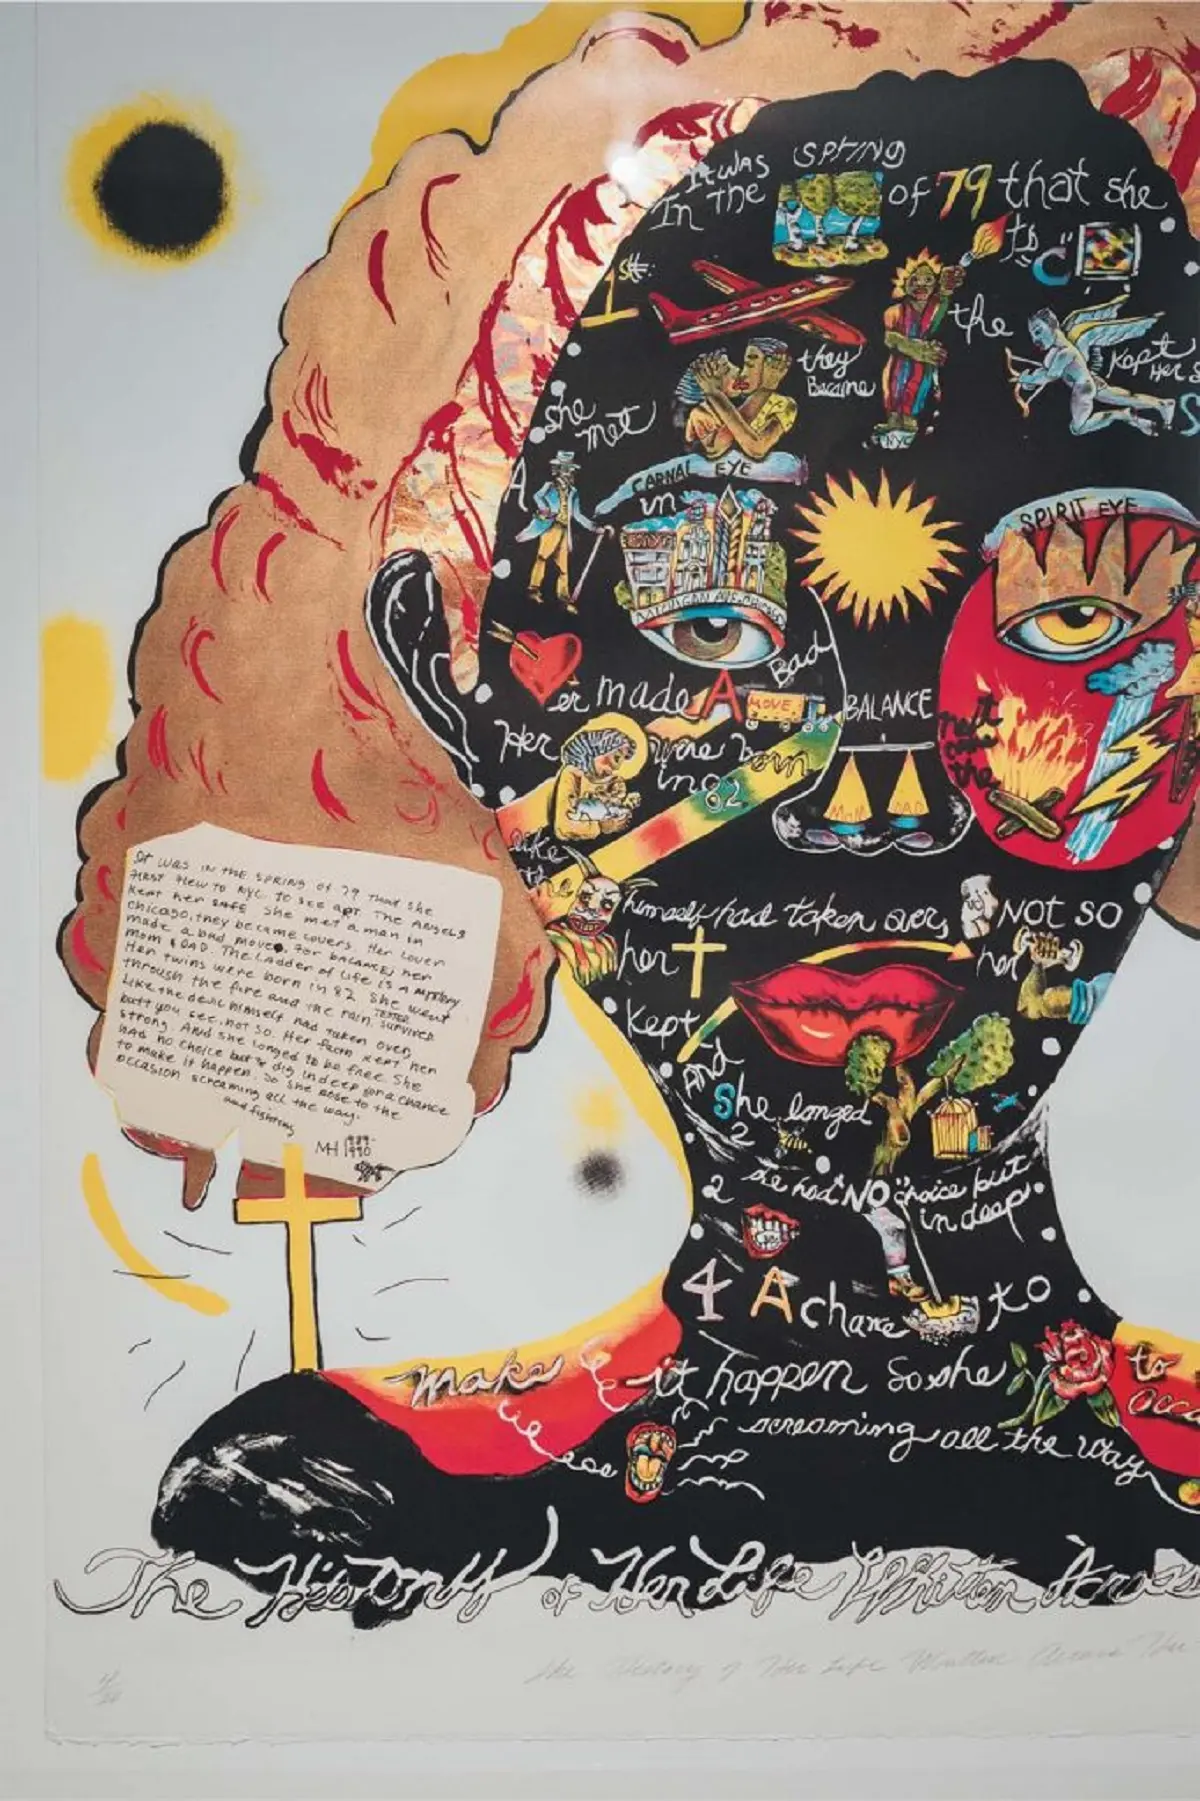 It was
In the
SPRING
of 79 that she
1st
to
C
the
they
Became
NYC
Kept
Her
She
met
A
CARNAL EYE
in
MICHIGAN AVE. CHICAGO
SPIRIT EYE
er made A Bad
MOVE
BALANCE
Her
were born
in 82
MOM
DAD
not
on
the
like
the
himself had taken over,
NOT SO
her
her
kept
And
She longed
2
she had "NO" choice but
2
in deep
4 A chance
to
make
it happen So she
to
occa
screaming all the way
It was in the spring of 79 that she
first flew to NYC. to see art The Angels
kept her safe She met a man in
chicago, they became lovers. Her lover
made a bad move. For balance, her
mom & DAD. The Ladder of life is a mystery
Her twins were born in 82 She went
through the fire and the rain.
Like the devil himself had taken over,
survived
butt you see, not so. Her faith kept her
strong. And she longed to be free. She
had no choice but to dig in deep for a chance
to make it happen. So she rose to the
occasion screaming all the way.
and fighting
MH 1989-
1990
The History of Her Life Written Across
The History of Her Life Written Across Her